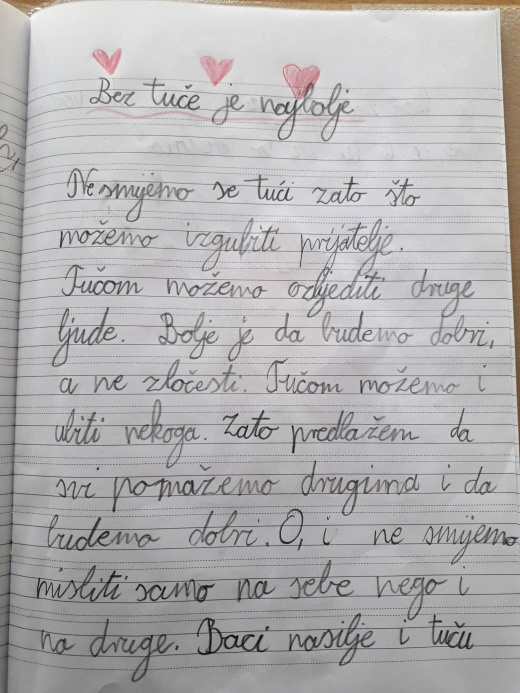 Bez tuče je najbolje
Ne smijemo se tući zato što
možemo izgubiti prijatelje.
Tučom možemo ozlijediti druge
ljude. Bolje je da budemo dobri,
a ne zločesti. Tučom možemo i
ubiti nekoga. Zato predlažem da
svi pomažemo drugima i da
budemo dobri. O, i ne smijemo
misliti samo na sebe nego i
na druge. Baci nasilje i tuču